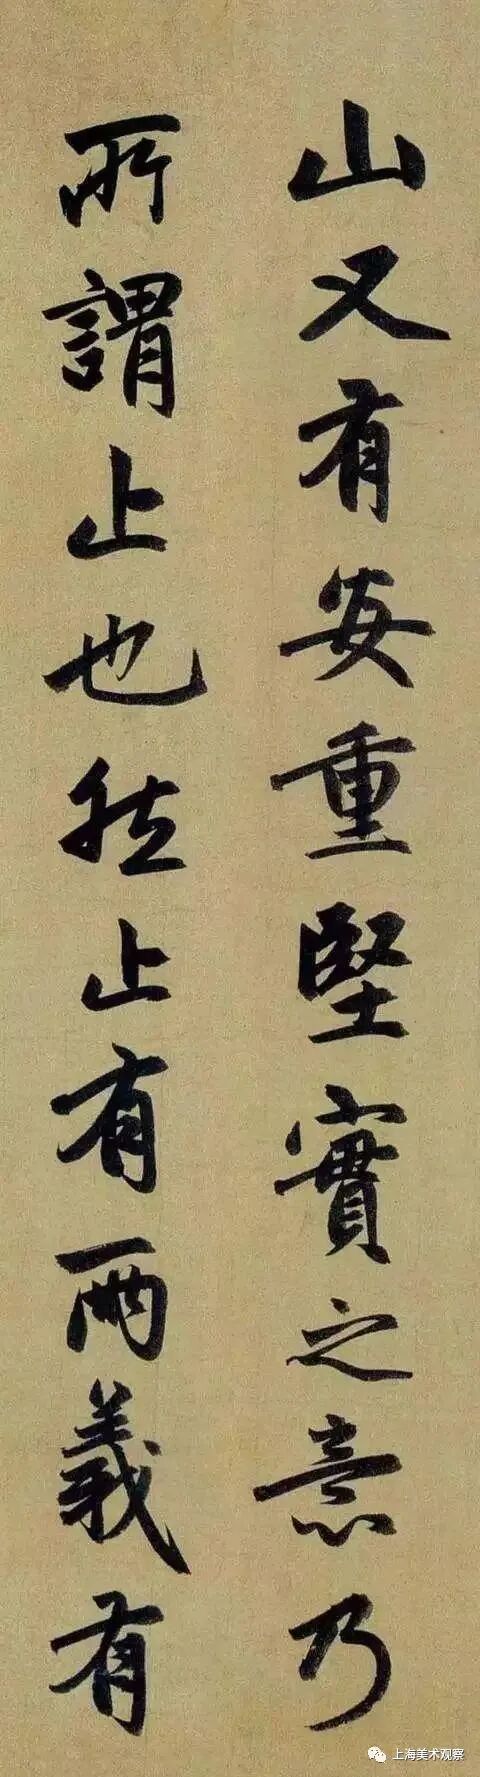 山又有安重堅實之意乃
所謂止也然止有兩義有
上海美术观察